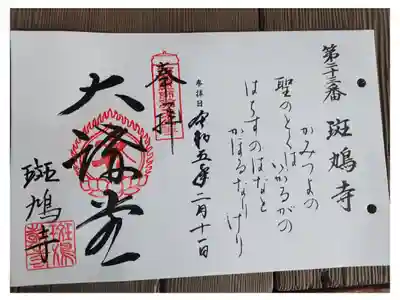 第三十二番 斑鳩寺
かみつよの
聖のとくは いかるがの
はちすのはなと
かほるなりけり
参拝日 令和五年二月十一日
奉拝
大講堂
斑鳩寺